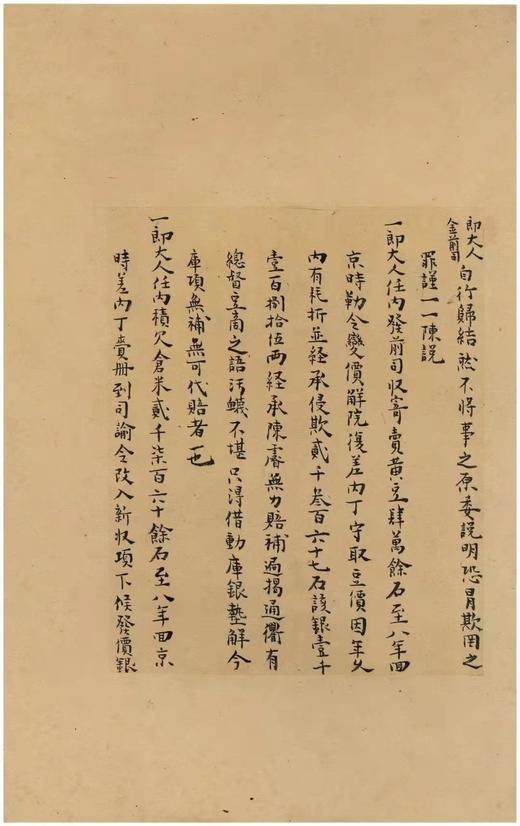 郎大人金前司自行歸結然不將事之原委說明恐冒欺罔之
罪謹一一陳說
一郎大人任內發前司收寄賣黃豆肆萬餘石至八年回
京時勒令變價解院復差內丁守取豆價因年久
內有耗折並經承侵欺貳千叁百六十七石該銀壹千
壹百捌拾伍兩経承陳睿無力賠補遍揭通衢有
總督豆商之語污衊不堪只得借動庫銀墊解今
庫項無補無可代賠者一也
一郎大人任內積欠倉米貳千柒百六十餘石至八年回京
時差內丁賫冊到司諭令改入新收項下候發價銀